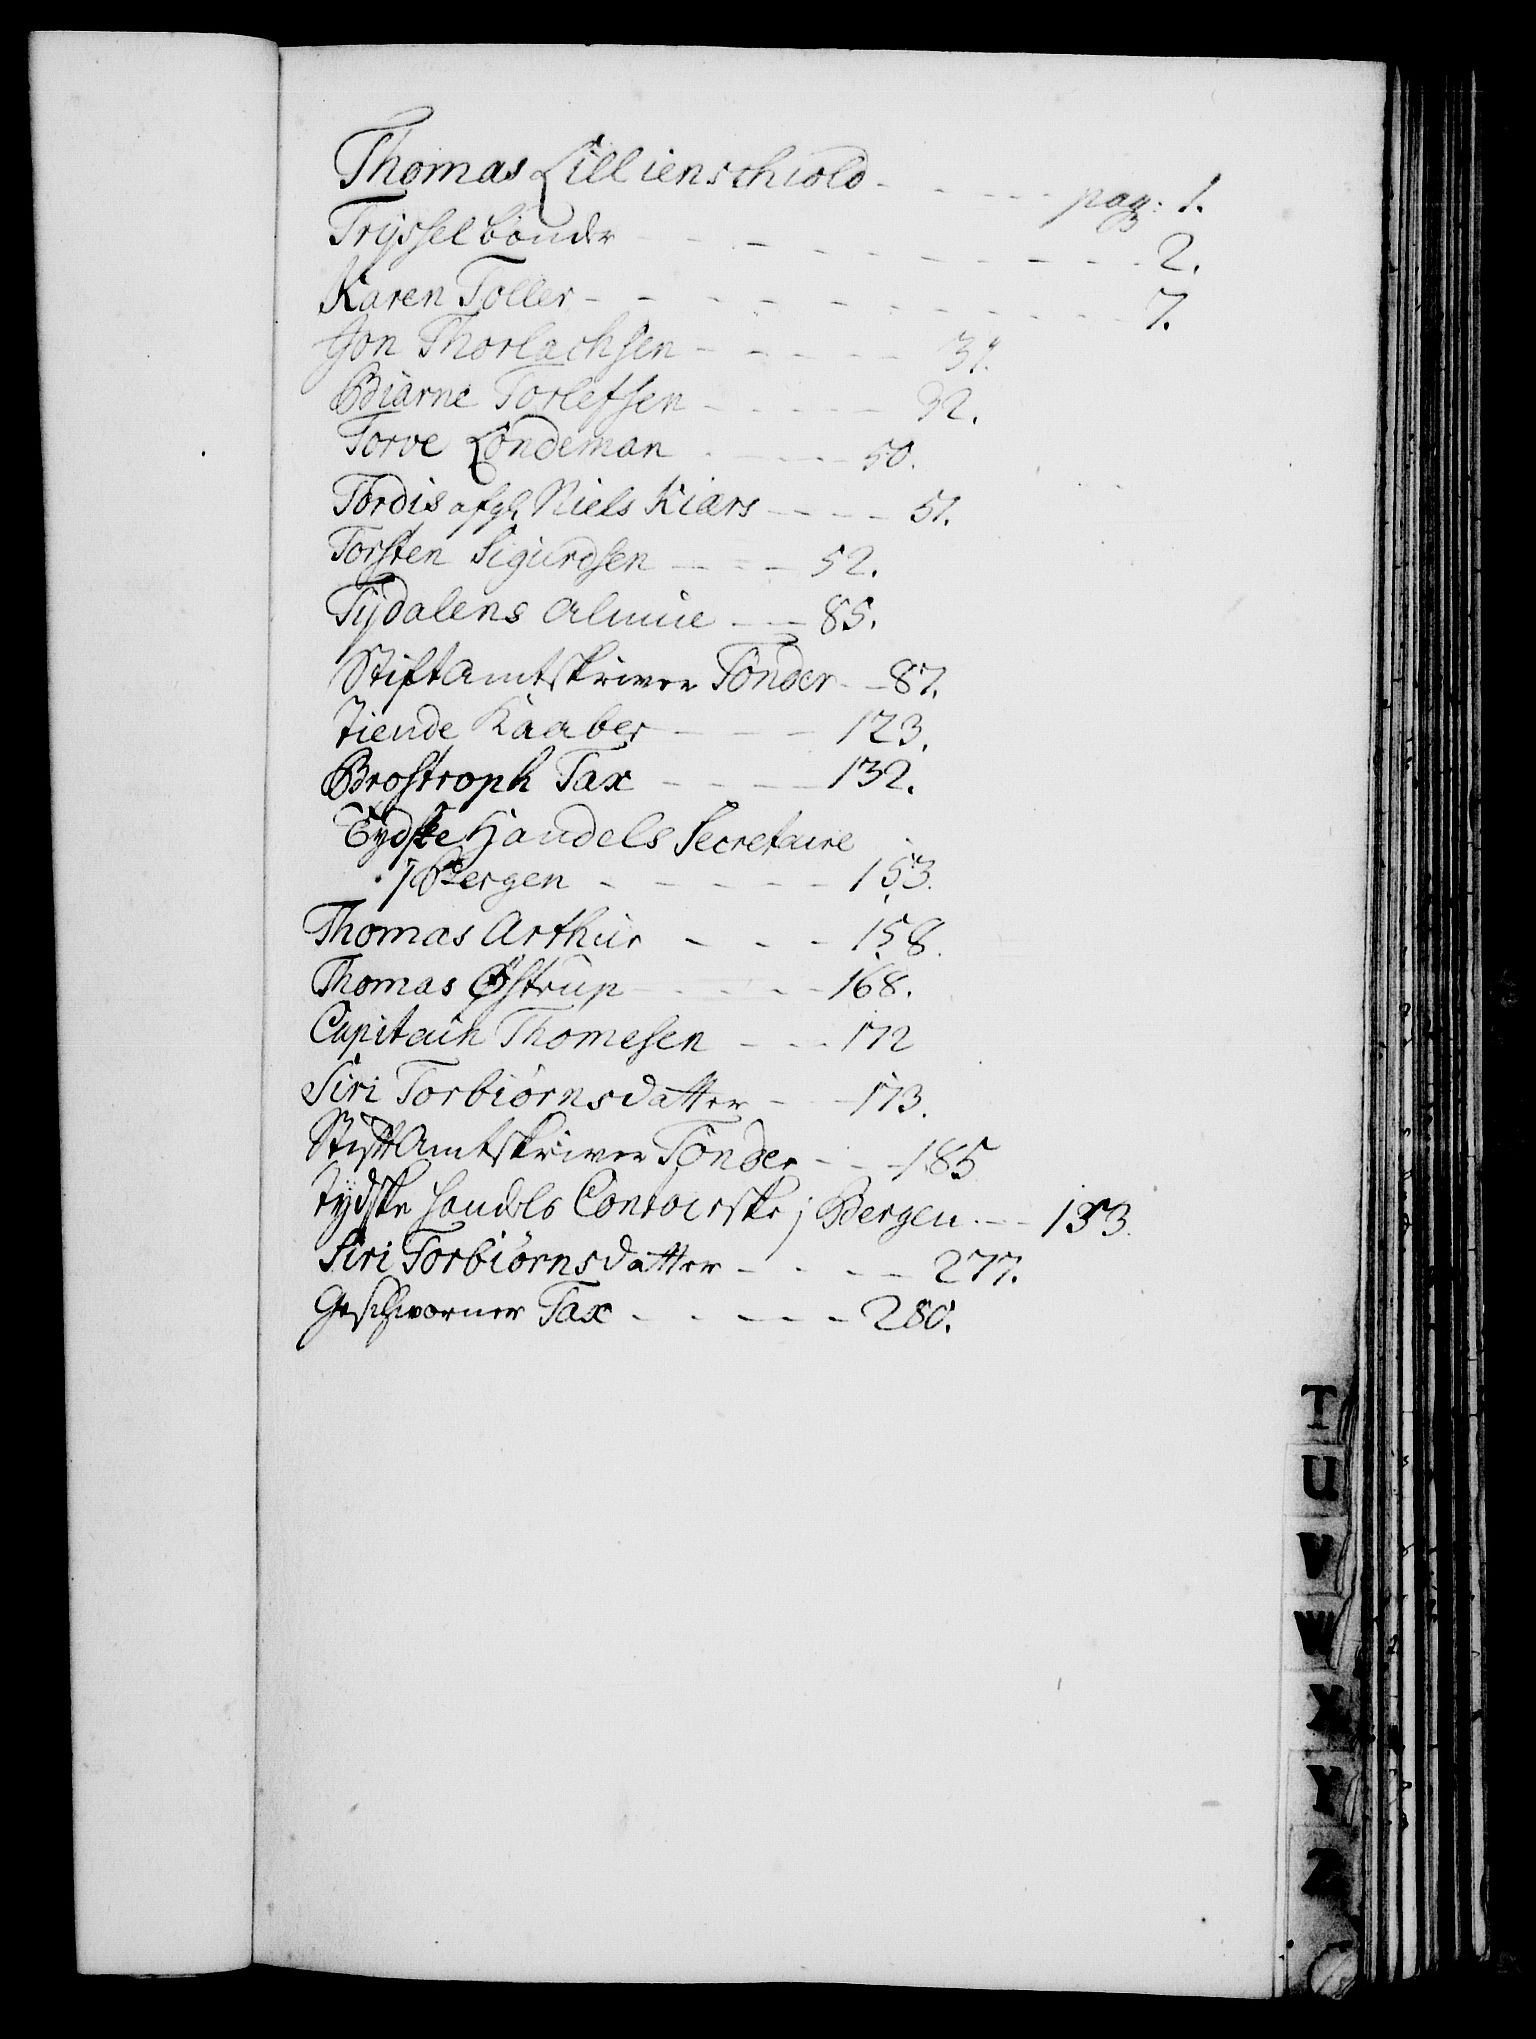 Thomas Lillienschiold - - - - - pag: 1.
Tryssel bönder - - - - - - - - - 2.
Karen Toller - - - - - - - - - 7.
Jon Thorlachsen - - - - - 31.
Biarne Torlefsen - - - - - 32.
Torve Londeman - - - - 50.
Tordis afg. Niels Kiærs - - - - 51.
Torsten Sigurdsen - - - 52.
Tydalens Almue - - 85.
StiftAmtskriver Tonder - - 87.
Tiende Kaaber - - - 123.
Brostroph Tax - - - - 132.
Tydske Handels Secretaire
i Bergen - - - - - 153.
Thomas Arthur - - - 158.
Thomas Østrup - - - - 168.
Capitain Thomesen - - - 172
Siri Torbiørnsdatter - - 173.
StiftAmtskriver Tonder - - - 185
Tydske Handels Contoirske i Bergen - - 153.
Siri Torbiørnsdatter - - - - 277.
Geschworner Tax - - - - - 280.
T
U
V
W
X
Y
Z